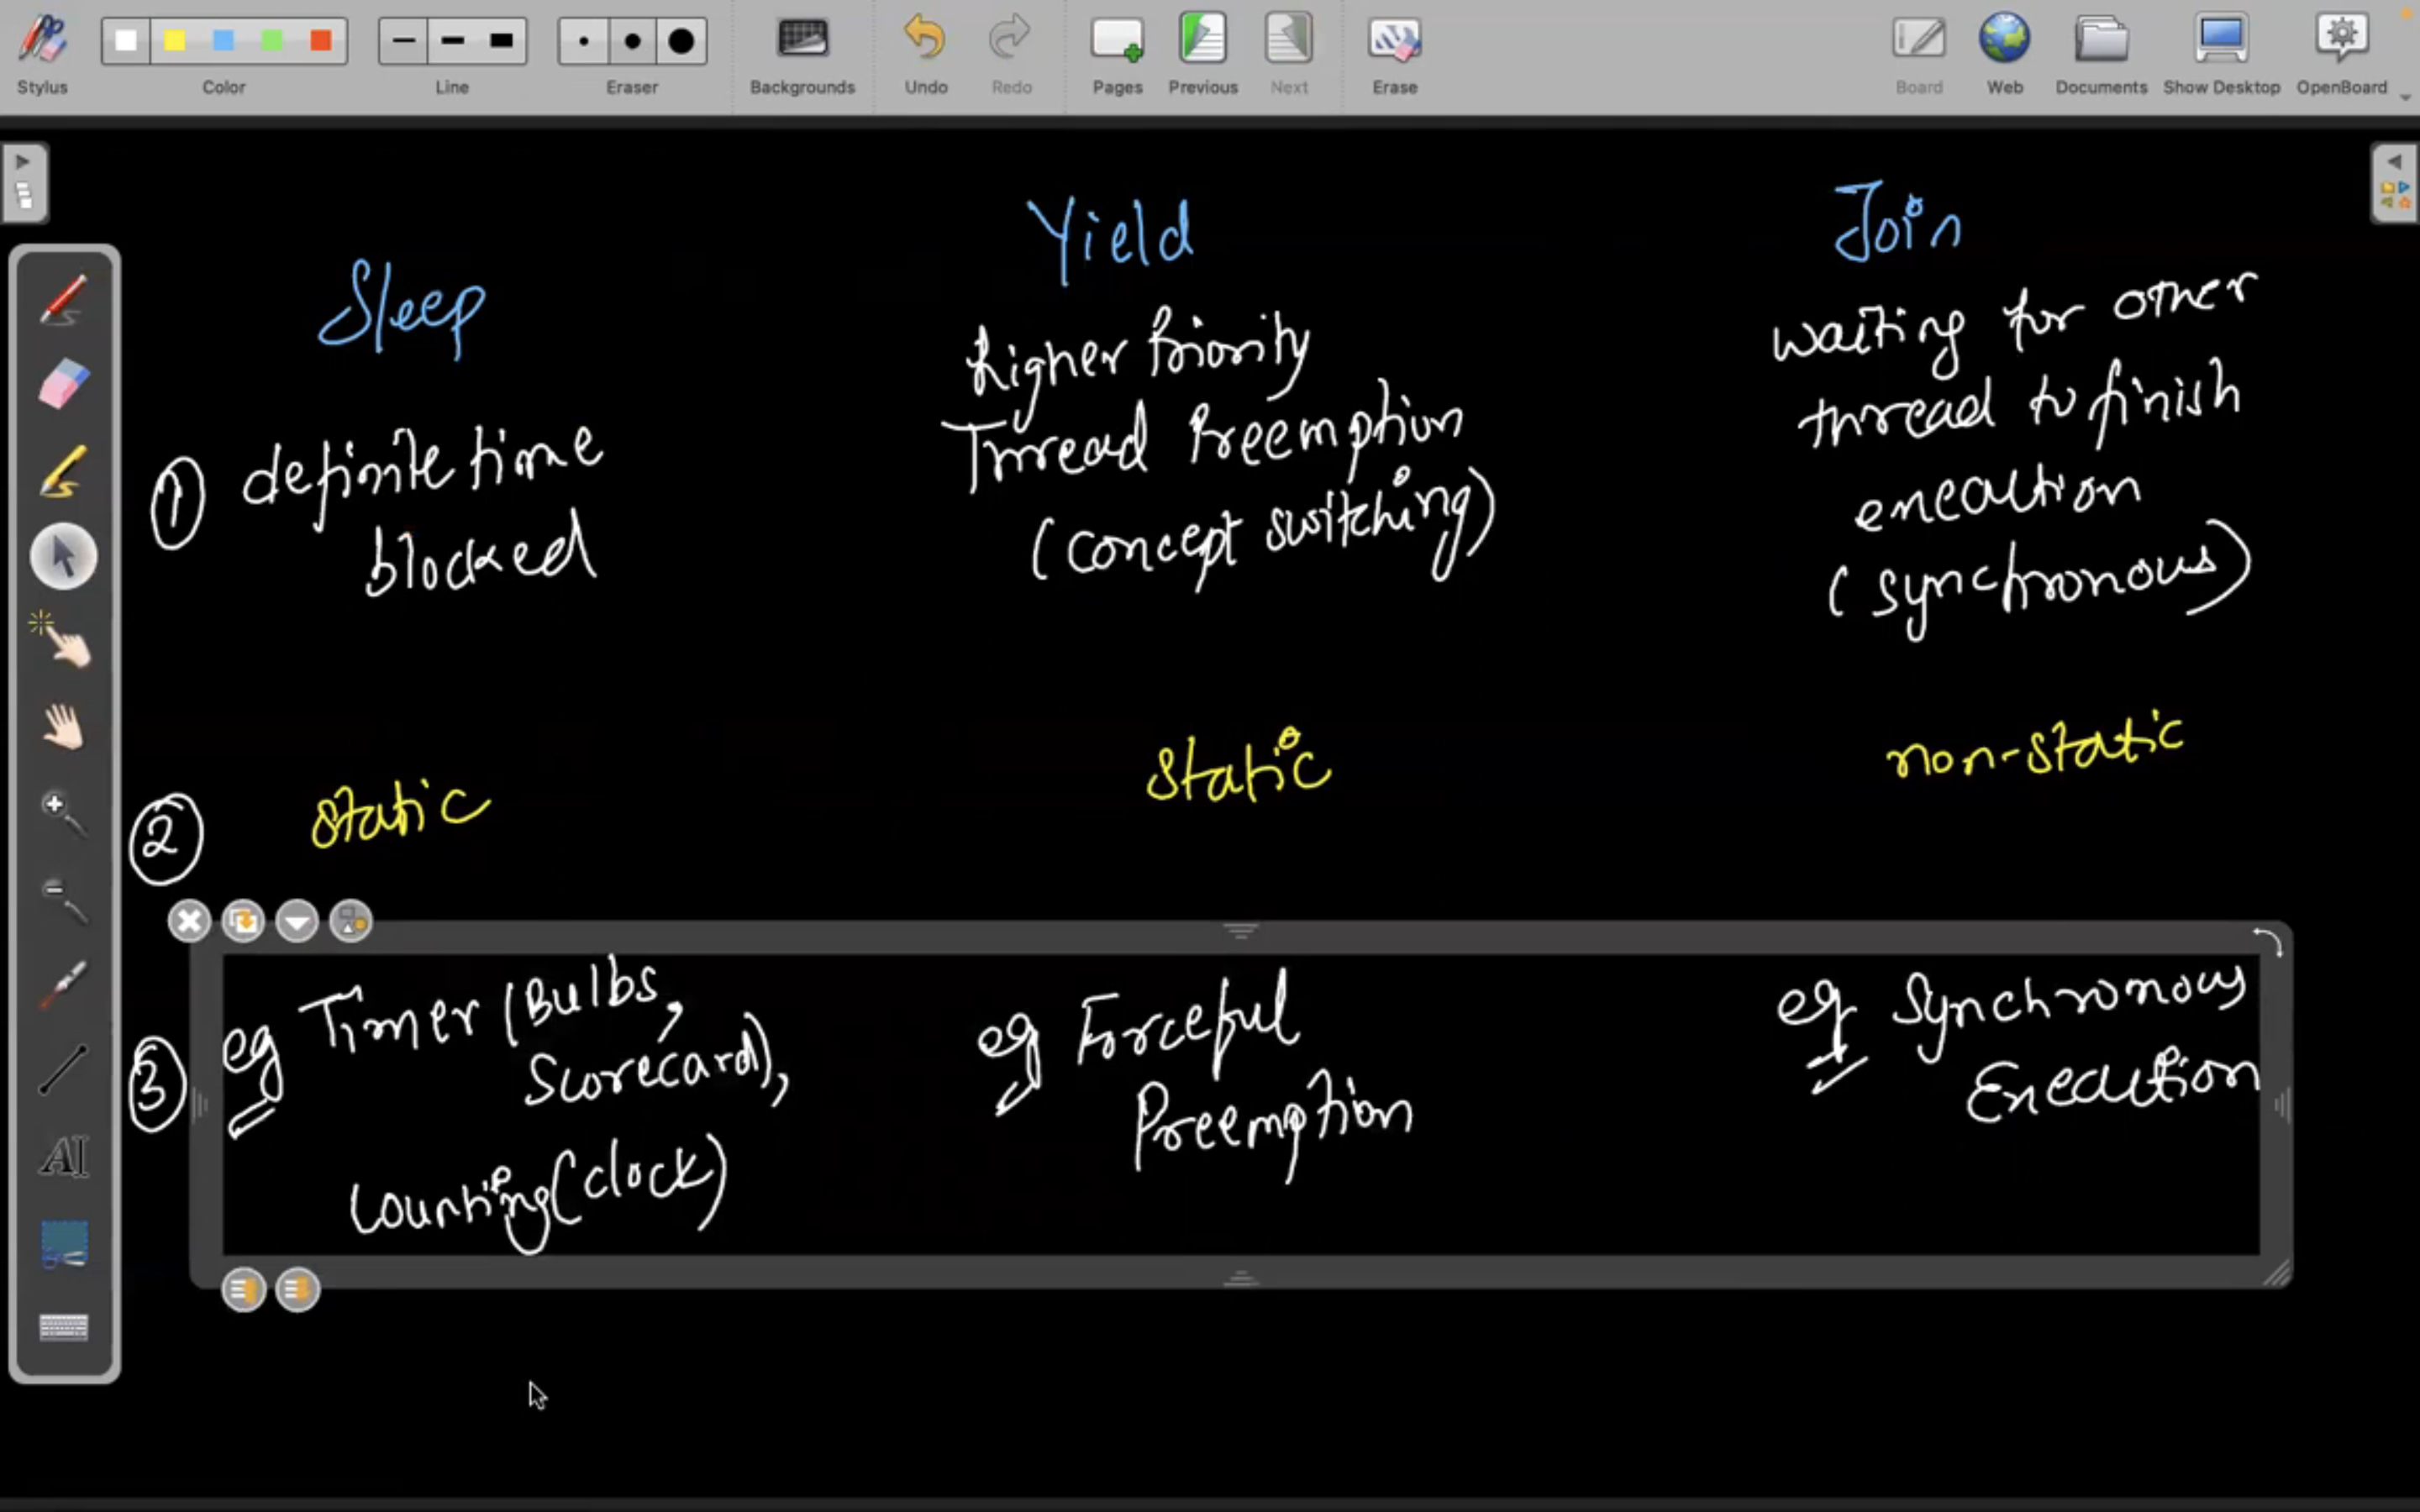 Stylus
Color
Line
Eraser
Backgrounds
Undo
Redo
Pages
Previous
Next
Erase
Board
Web
Documents
Show Desktop
OpenBoard
Sleep
Yield
Join
① definite time
blocked
higher Priority
Thread Preemption
(concept switching)
waiting for other
thread to finish
execution
(synchronous)
② static
static
non-static
③ eg Timer (Bulbs,
Scorecard),
Counting (clock)
eg Forceful
Preemption
eg Synchronous
Execution
AI